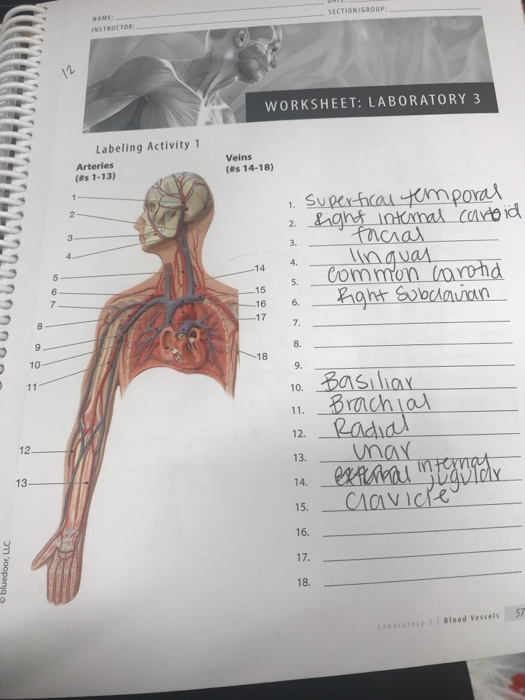 NAME:
SECTION/GROUP:
INSTRUCTOR:
12
WORKSHEET: LABORATORY 3
Labeling Activity 1
Arteries
(#s 1-13)
Veins
(#s 14-18)
1
2
3
4
5
6
7
8
9
10
11
12
13
14
15
16
17
18
1. Superfical temporal
2. Right internal carotid
3. facial
4. lingual
5. common carotid
6. Right Subclavian
7.
8.
9.
10. Basiliar
11. Brachial
12. Radial
13. Unar
14. external internal jugular
15. clavicle
16.
17.
18.
© bluedoor, LLC
Laboratory 3 | Blood Vessels 57